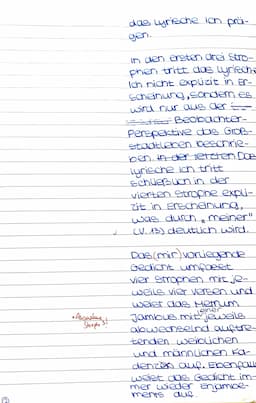 das lyrische Ich prä-
gen.
In den ersten drei Stro-
phen tritt das lyrische
Ich nicht explizit in Er-
scheinung, sondern es
wird nur aus der
Beobachter-
Perspektive das Groß-
stadtleben beschrie-
ben. In der letzten Das
lyrische Ich tritt
schließlich in der
vierten Strophe expli-
zit in Erscheinung,
was durch „meiner"
(V. 13) deutlich wird.
Das (mir) vorliegende
Gedicht umfasst
vier Strophen mit je-
weils vier Versen und
weist das Metrum
Jambus mit jeweils
abwechselnd auftre-
tenden weiblichen
und männlichen Ka-
denzen auf. Ebenfalls
weist das Gedicht im-
mer wieder Enjambe-
ments auf.